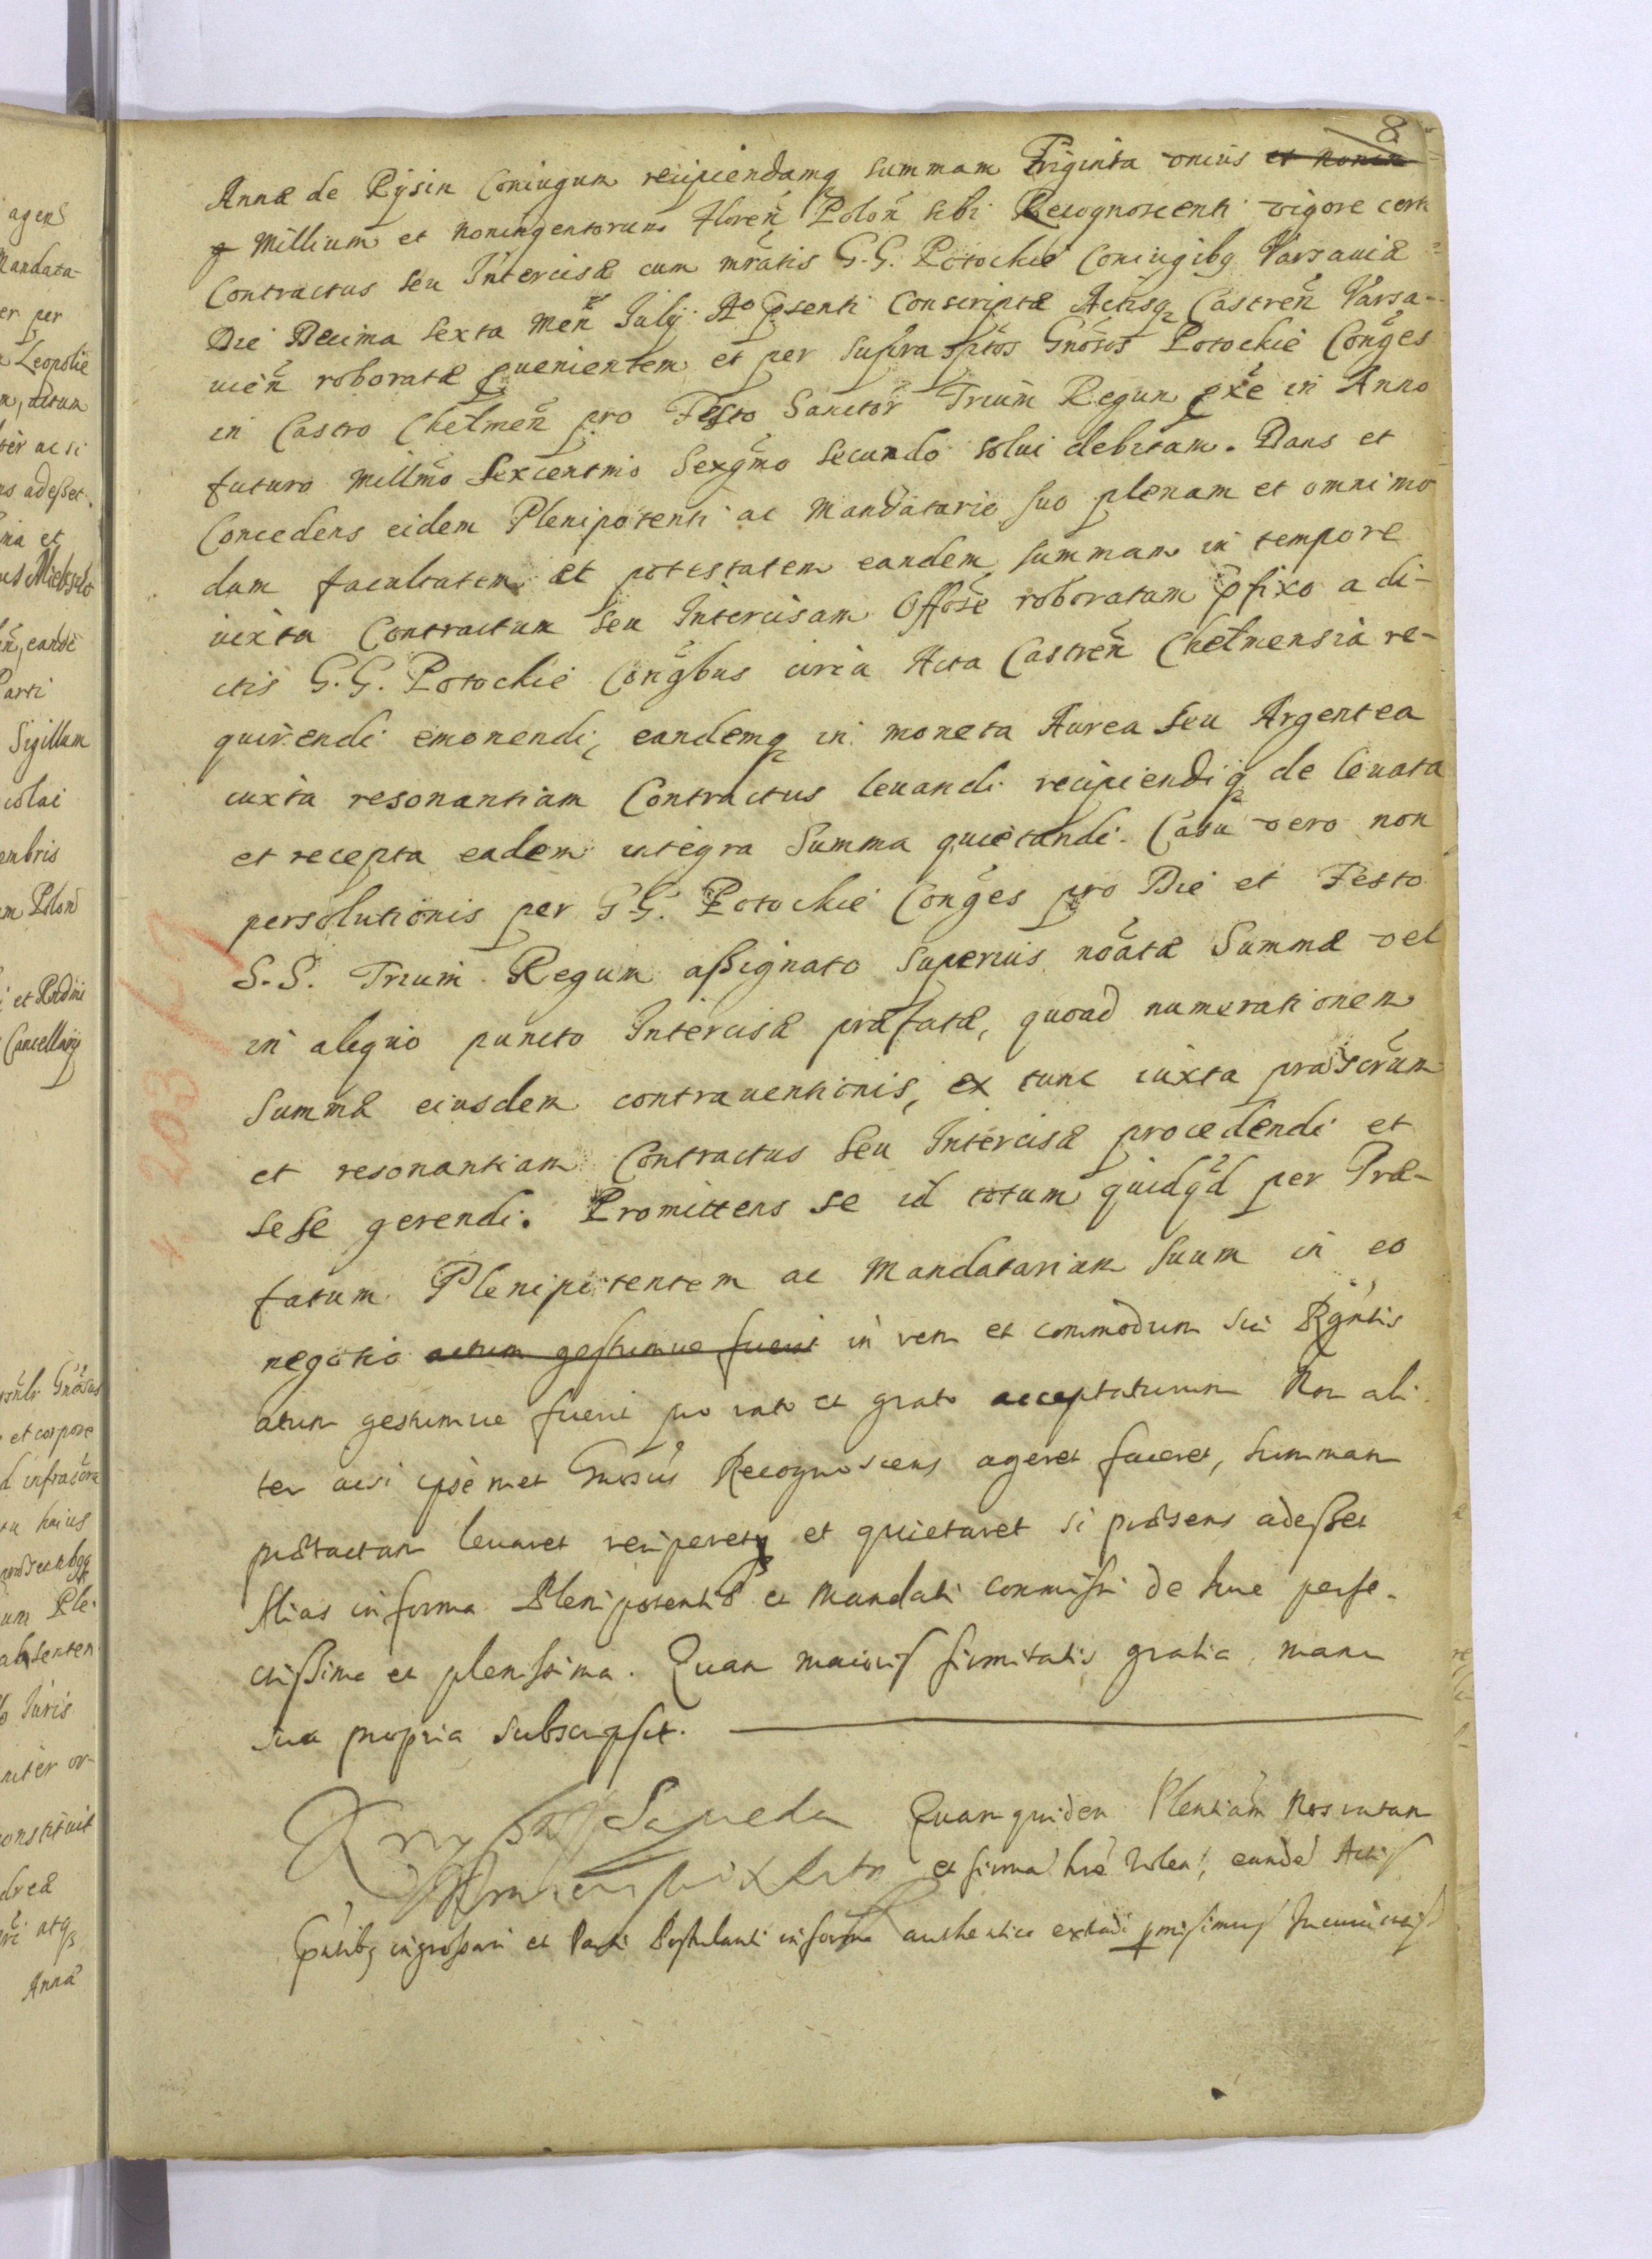 8
Annæ de Rysin Coniugum recipiendamq summam Triginta unius et nonin
q Millium et noningentorum Floreñ Poloñ sibi Recognoscenti vigore certi
Contractus seu Intercisæ cum mratis G.G. Potockie Coniugibq Varsauiæ
Die Decima Sexta Meñ Julÿ Aº Psenti Conscriptæ Actisq Castreñ Varsa-
uieñ roboratæ puenientem et per supra sptos Gnosos Potockie Conges
in Castro Chełmeñ pro Festo Sanctor Trium Regum pxe in Anno
futuro Millmo Sexcentmo Sexgmo Secundo solui debitam. Dans et
Concedens eidem Plenipotenti ac Mandatario suo plenam et omnimo
dam facultatem et potestatem eandem summam in tempore
iuxta Contractum seu Intercisam Offose roboratam pfixo a di-
ctis G.G. Potockie Congbus circa Acta Castreñ Chełmensia re-
quirendi emonendi, eandemq in moneta Aurea seu Argentea
iuxta resonantiam Contractus leuandi recipiendiq de leuata
et recepta eadem integra Summa quietandi. Casu vero non
persolutionis per G.G. Potockie Conges pro Die et Festo
S.S. Trium Regum assignato superius noatæ Summæ vel
in aliquo puncto Intercisæ præfatæ, quoad numerationem
Summæ eiusdem contrauentionis, ex tunc iuxta præscrum
et resonantiam Contractus seu Intercisæ procedendi et
sese gerendi. Promittens se id totum quidqd per Præ-
fatum Plenipotentem ac Mandatarium suum in eo
negotio actum gestumue fuerit in rem et commodum sui Rgntis
actum gestumue fuerit pro rato et grato acceptaturum Non ali
ter acsi ipsemet Gnosus Recognoscens ageret faceret, summam
prætactam leuaret reciperetq et quietaret si præsens adesset
Alias in forma Plenipotentiæ et Mandati commissi de hine perfe-
ctissima et plenissima. Quam maioris firmitatis gratia, manu
sua propria subscripsit.
Krzysztof Sapieha Quam quidem Plentiam nos ratam
et firma here volen, eande Actis
Pntibq ingrossari et Parti Postulanti in forma authentica extradi pmisimus